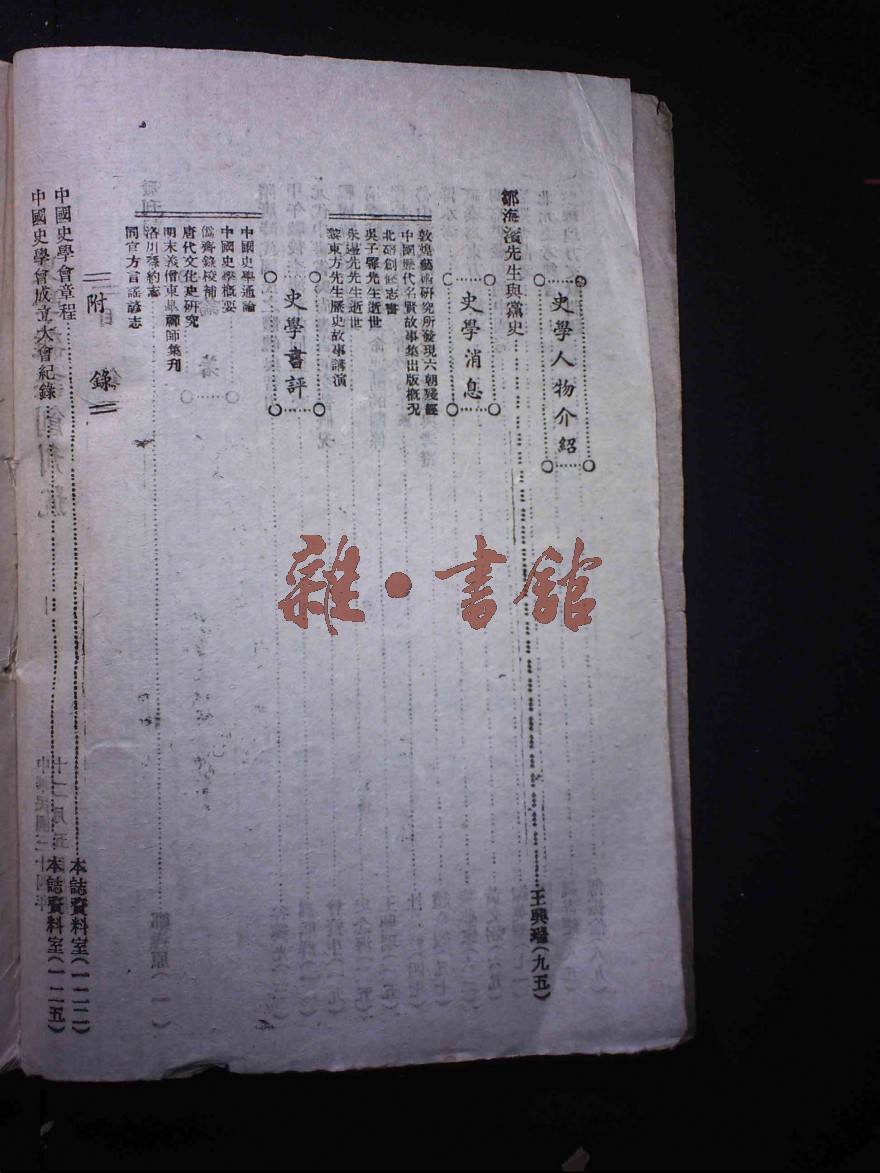 史學人物介紹
鄒海濱先生與黨史……王興瑞(九五)
史學消息
敦煌藝術研究所發現六朝殘經
中國歷代名賢故事集出版概況
北碚創修志書
吳子馨先生逝世
朱逷先先生逝世
黎東方先生歷史故事講演
史學書評
中國史學通論
中國史學概要
偽齊錄校補
唐代文化史研究
明末義僧東皋禪師集刊
洛川縣約志
同官方言謠諺志
附錄
中國史學會章程……本誌資料室(一二二)
中國史學會成立大會紀錄……本誌資料室(一二五)
雜·書館